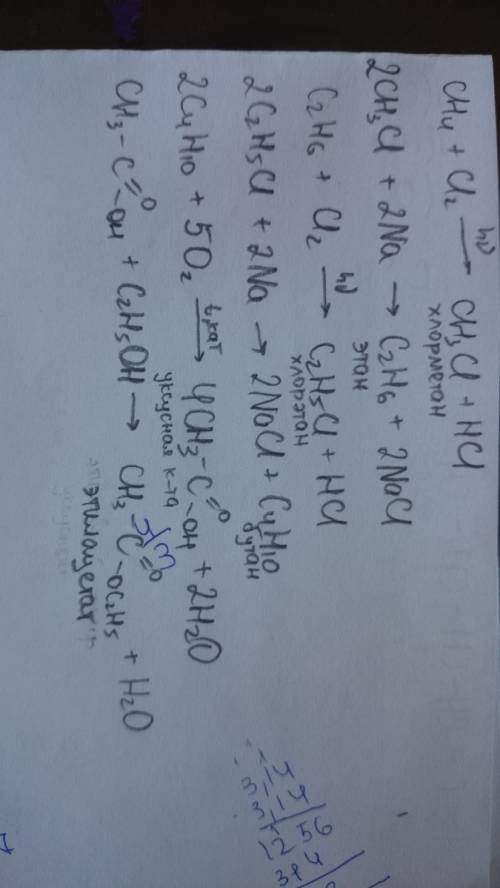 CH4 + Cl2 —hν→ CH3Cl + HCl
хлорметан
2CH3Cl + 2Na → C2H6 + 2NaCl
этан
C2H6 + Cl2 —hν→ C2H5Cl + HCl
хлорэтан
2C2H5Cl + 2Na → 2NaCl + C4H10
бутан
2C4H10 + 5O2 —t,кат→ 4CH3-C=O-OH + 2H2O
уксусная к-та
CH3-C=O-OH + C2H5OH → CH3-C=O-OC2H5 + H2O
этилацетат
56